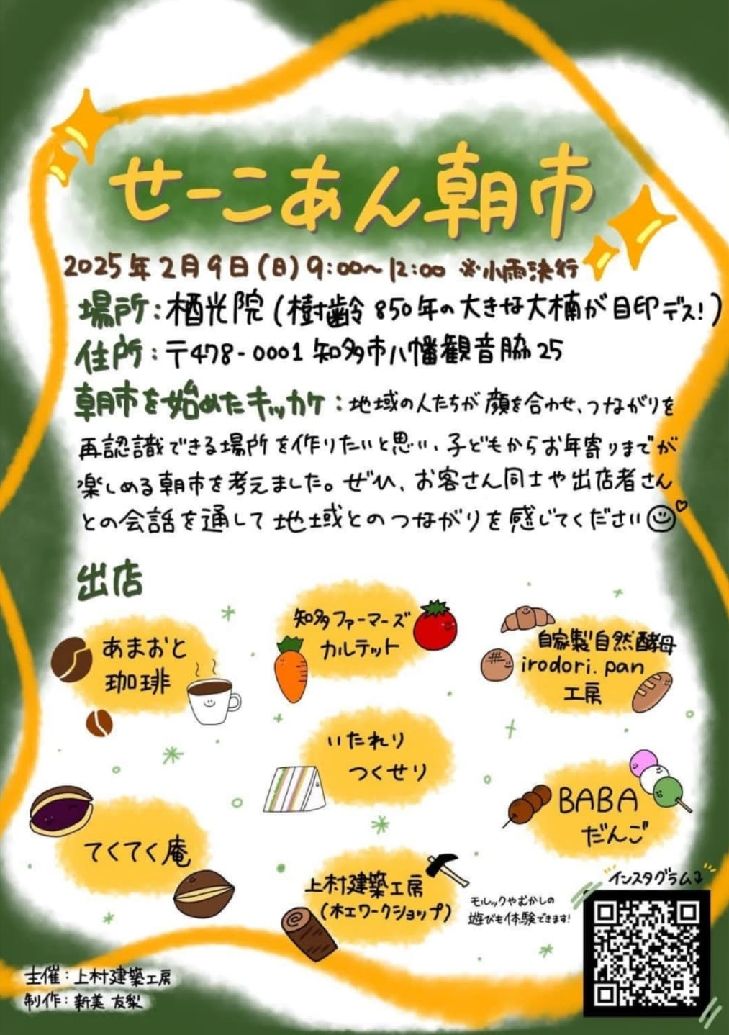 せーこあん朝市
2025年2月9日(日)9:00〜12:00 ※小雨決行
場所:栖光院(樹齢850年の大きな大楠が目印デス!)
住所:〒478-0001 知多市八幡観音脇25
朝市を始めたキッカケ:地域の人たちが顔を合わせ、つながりを
再認識できる場所を作りたいと思い、子どもからお年寄りまでが
楽しめる朝市を考えました。ぜひ、お客さん同士や出店者さん
との会話を通して地域とのつながりを感じてください
出店
あまおと
珈琲
知多ファーマーズ
カルテット
自家製自然酵母
irodori.pan
工房
いたれり
つくせり
BABA
だんご
てくてく庵
上村建築工房
(木工ワークショップ)
モルックやむかしの
遊びも体験できます!
インスタグラム
主催:上村建築工房
制作:新美 友梨